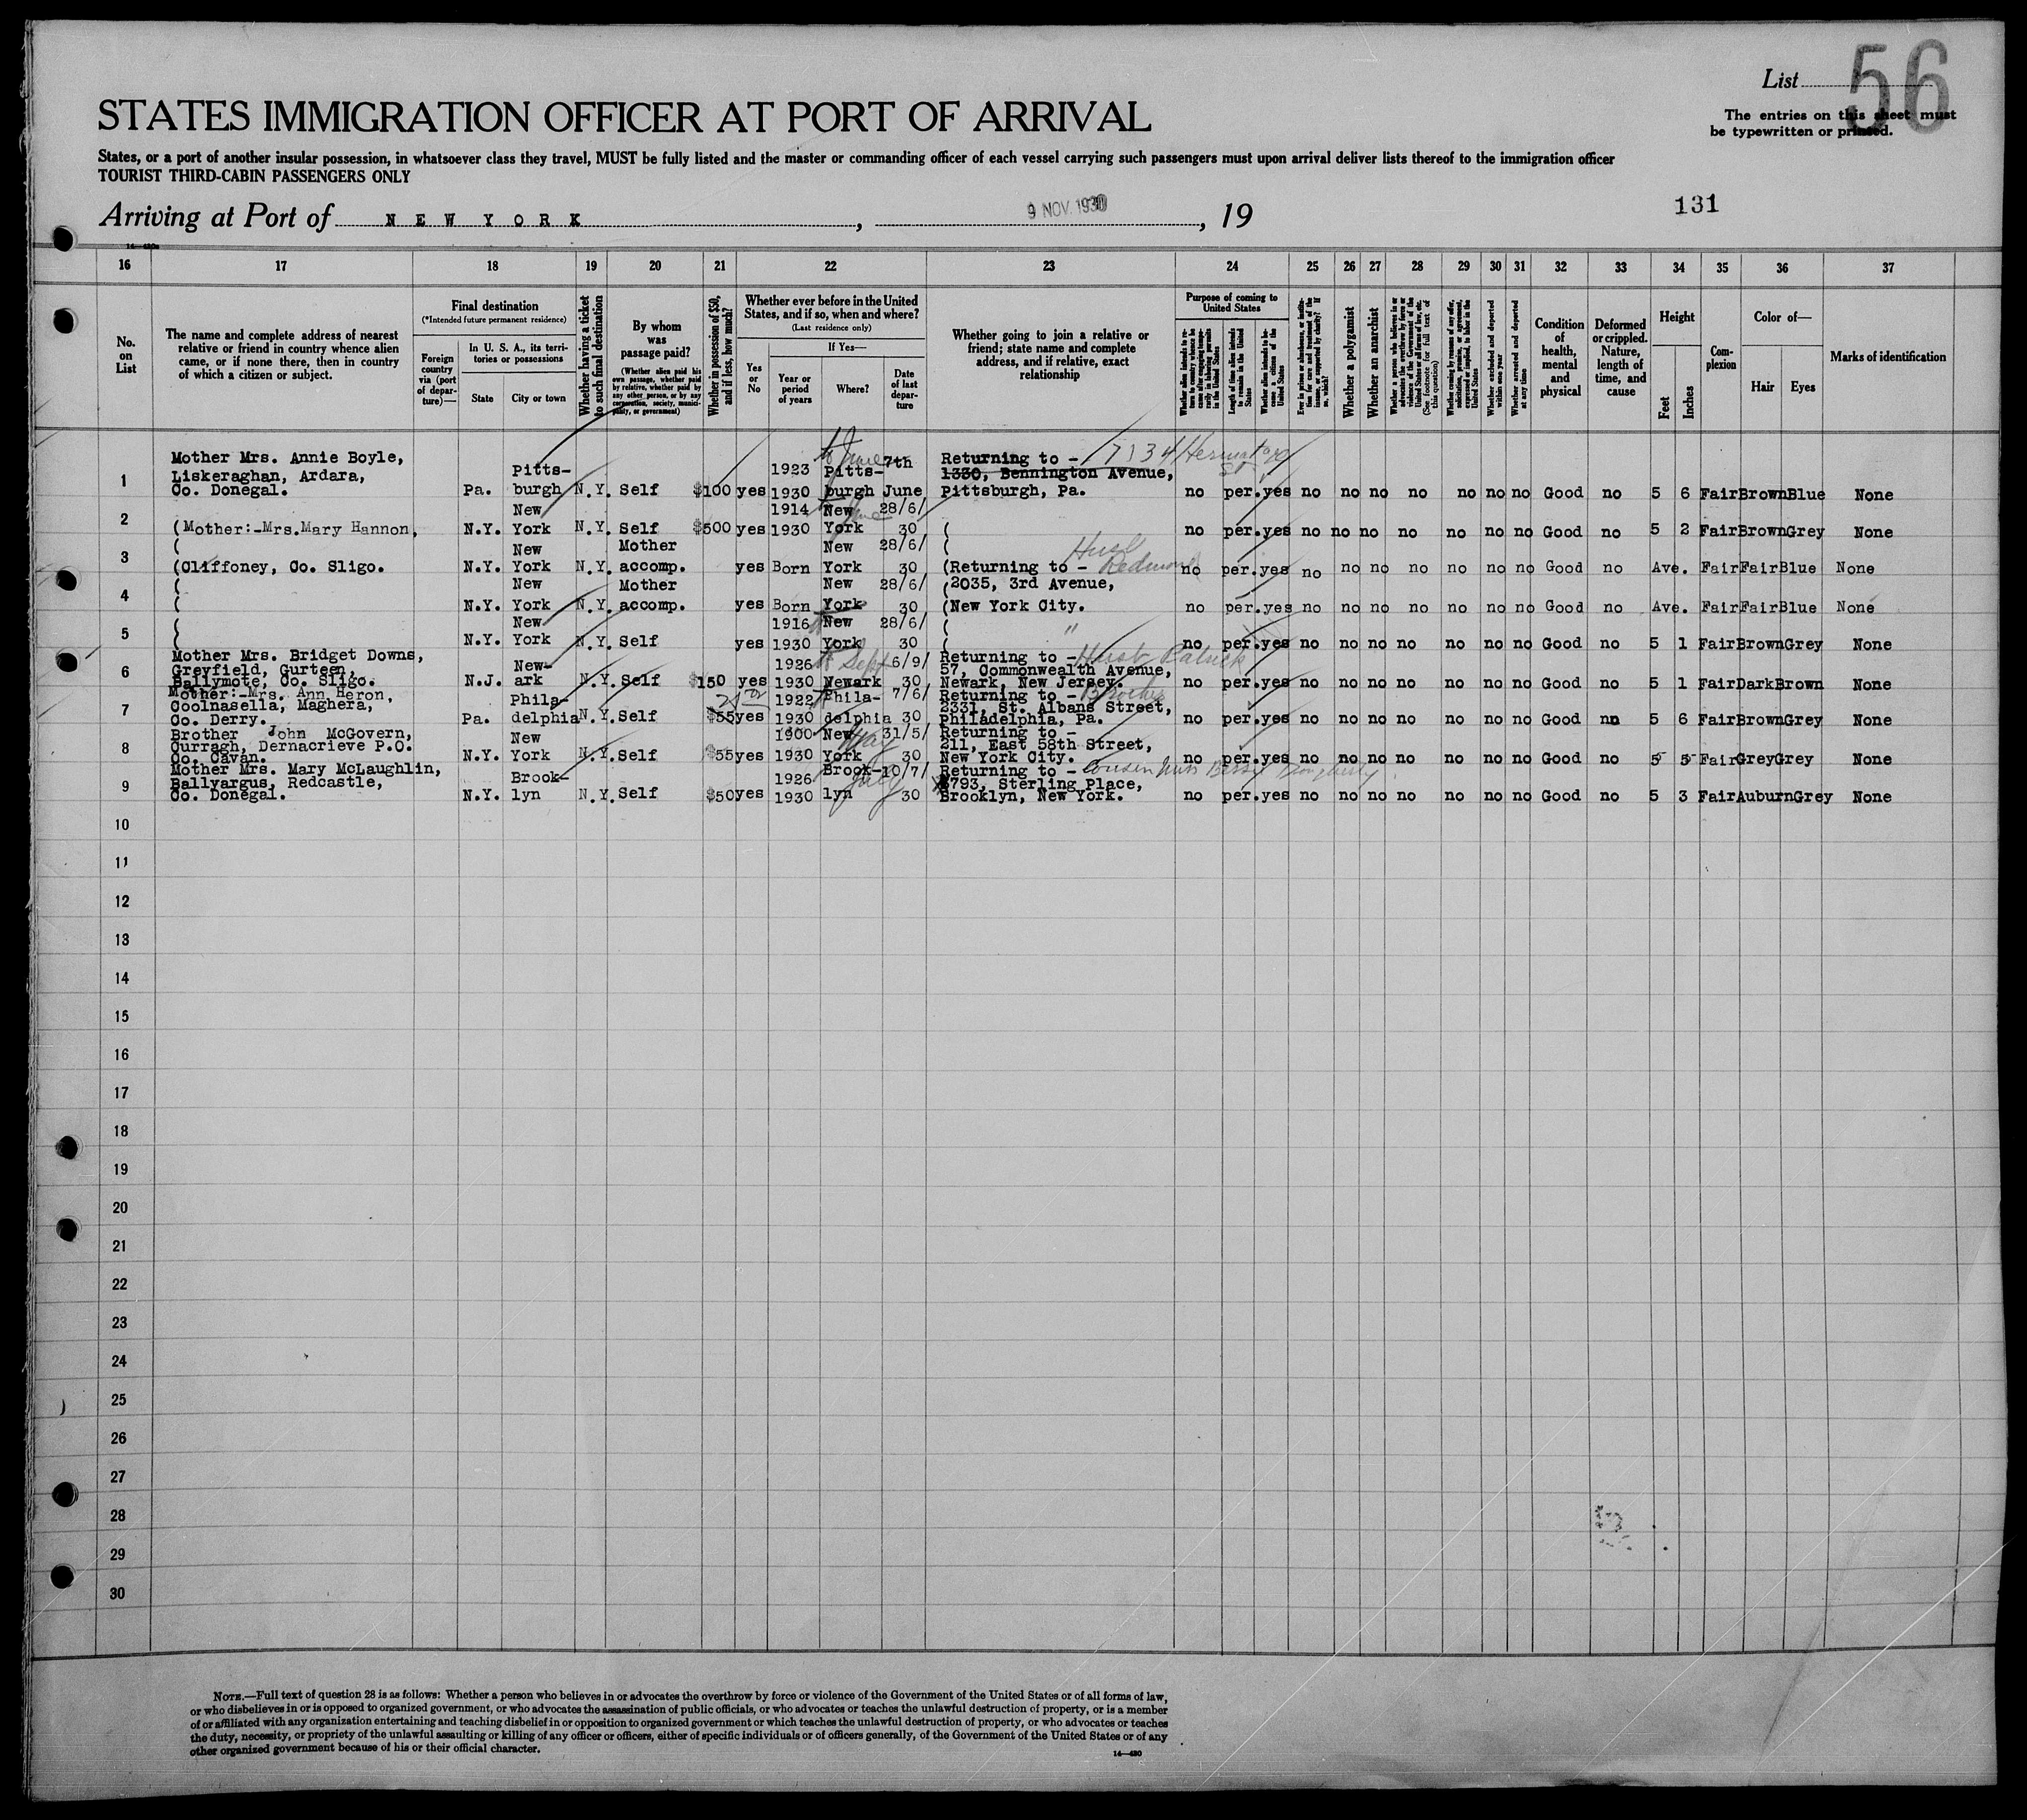 List 56
The entries on this sheet must
be typewritten or printed.
STATES IMMIGRATION OFFICER AT PORT OF ARRIVAL
States, or a port of another insular possession, in whatsoever class they travel, MUST be fully listed and the master or commanding officer of each vessel carrying such passengers must upon arrival deliver lists thereof to the immigration officer
TOURIST THIRD-CABIN PASSENGERS ONLY
Arriving at Port of NEW YORK, 9 NOV. 1930, 19
131
16 17 18 19 20 21 22 23 24 25 26 27 28 29 30 31 32 33 34 35 36 37
No. on List
The name and complete address of nearest relative or friend in country whence alien came, or if none there, then in country of which a citizen or subject.
Final destination
(*Intended future permanent residence)
Foreign country via (port of departure)—
In U. S. A., its territories or possessions
State
City or town
Whether having a ticket to such final destination
By whom was passage paid?
(Whether alien paid his own passage, whether paid by relative, whether paid by any other person, or by any corporation, society, municipality, or government)
Whether in possession of $50, and if less, how much?
Whether ever before in the United States, and if so, when and where?
(Last residence only)
Yes or No
If Yes—
Year or period of years
Where?
Date of last departure
Whether going to join a relative or friend; state name and complete address, and if relative, exact relationship
Purpose of coming to United States
Length of time alien intends to remain in the United States
Whether alien intends to become a citizen of the United States
Whether a polygamist
Whether an anarchist
Whether excluded and deported within one year
Whether arrested and deported at any time
Condition of health, mental and physical
Deformed or crippled. Nature, length of time, and cause
Height
Feet
Inches
Complexion
Color of—
Hair
Eyes
Marks of identification
1 Mother Mrs. Annie Boyle, Liskeraghan, Ardara, Co. Donegal. Pa. Pittsburgh N.Y. Self $100 yes 1923 1930 Pittsburgh 7th June Returning to - 1330, Bennington Avenue, Pittsburgh, Pa. 7134 St. no per. yes no no no no no no no Good no 5 6 Fair Brown Blue None
2 (Mother:-Mrs.Mary Hannon, N.Y. New York N.Y. Self $500 yes 1914 1930 New York 28/6/30 ( no per. yes no no no no no no no Good no 5 2 Fair Brown Grey None
3 (Cliffoney, Co. Sligo. N.Y. New York N.Y. Mother accomp. yes Born New York 28/6/30 (Returning to - Husb Redmond no per. yes no no no no no no no Good no Ave. Fair Fair Blue None
4 ( N.Y. New York N.Y. Mother accomp. yes Born New York 28/6/30 (2035, 3rd Avenue, (New York City. no per. yes no no no no no no no Good no Ave. Fair Fair Blue None
5 ( N.Y. New York N.Y. Self yes 1916 1930 New York 28/6/30 ( " no per. yes no no no no no no no Good no 5 1 Fair Brown Grey None
6 Mother Mrs. Bridget Downs, Greyfield, Gurteen, Ballymote, Co. Sligo. N.J. Newark N.Y. Self $150 yes 1926 1930 Newark Sept 6/9/30 Returning to - Husb Patrick 57, Commonwealth Avenue, Newark, New Jersey. no per. yes no no no no no no no Good no 5 1 Fair Dark Brown None
7 Mother:-Mrs. Ann Heron, Coolnasella, Maghera, Co. Derry. Pa. Philadelphia N.Y. Self $55 yes 1922 1930 Philadelphia 7/6/30 Returning to - Brother 2331, St. Albans Street, Philadelphia, Pa. no per. yes no no no no no no no Good no 5 6 Fair Brown Grey None
8 Brother John McGovern, Curragh, Dernacrieve P.O. Co. Cavan. N.Y. New York N.Y. Self $55 yes 1900 1930 New York May 31/5/30 Returning to - 211, East 58th Street, New York City. no per. yes no no no no no no no Good no 5 5 Fair Grey Grey None
9 Mother Mrs. Mary McLaughlin, Ballyargus, Redcastle, Co. Donegal. N.Y. Brooklyn N.Y. Self $50 yes 1926 1930 Brooklyn July 10/7/30 Returning to - Cousin Miss Bessie 793, Sterling Place, Brooklyn, New York. no per. yes no no no no no no no Good no 5 3 Fair Auburn Grey None
10
11
12
13
14
15
16
17
18
19
20
21
22
23
24
25
26
27
28
29
30
NOTE.—Full text of question 28 is as follows: Whether a person who believes in or advocates the overthrow by force or violence of the Government of the United States or of all forms of law,
or who disbelieves in or is opposed to organized government, or who advocates the assassination of public officials, or who advocates or teaches the unlawful destruction of property, or is a member
of or affiliated with any organization entertaining and teaching disbelief in or opposition to organized government or which teaches the unlawful destruction of property, or who advocates or teaches
the duty, necessity, or propriety of the unlawful assaulting or killing of any officer or officers, either of specific individuals or of officers generally, of the Government of the United States or of any
other organized government because of his or their official character.
14—480